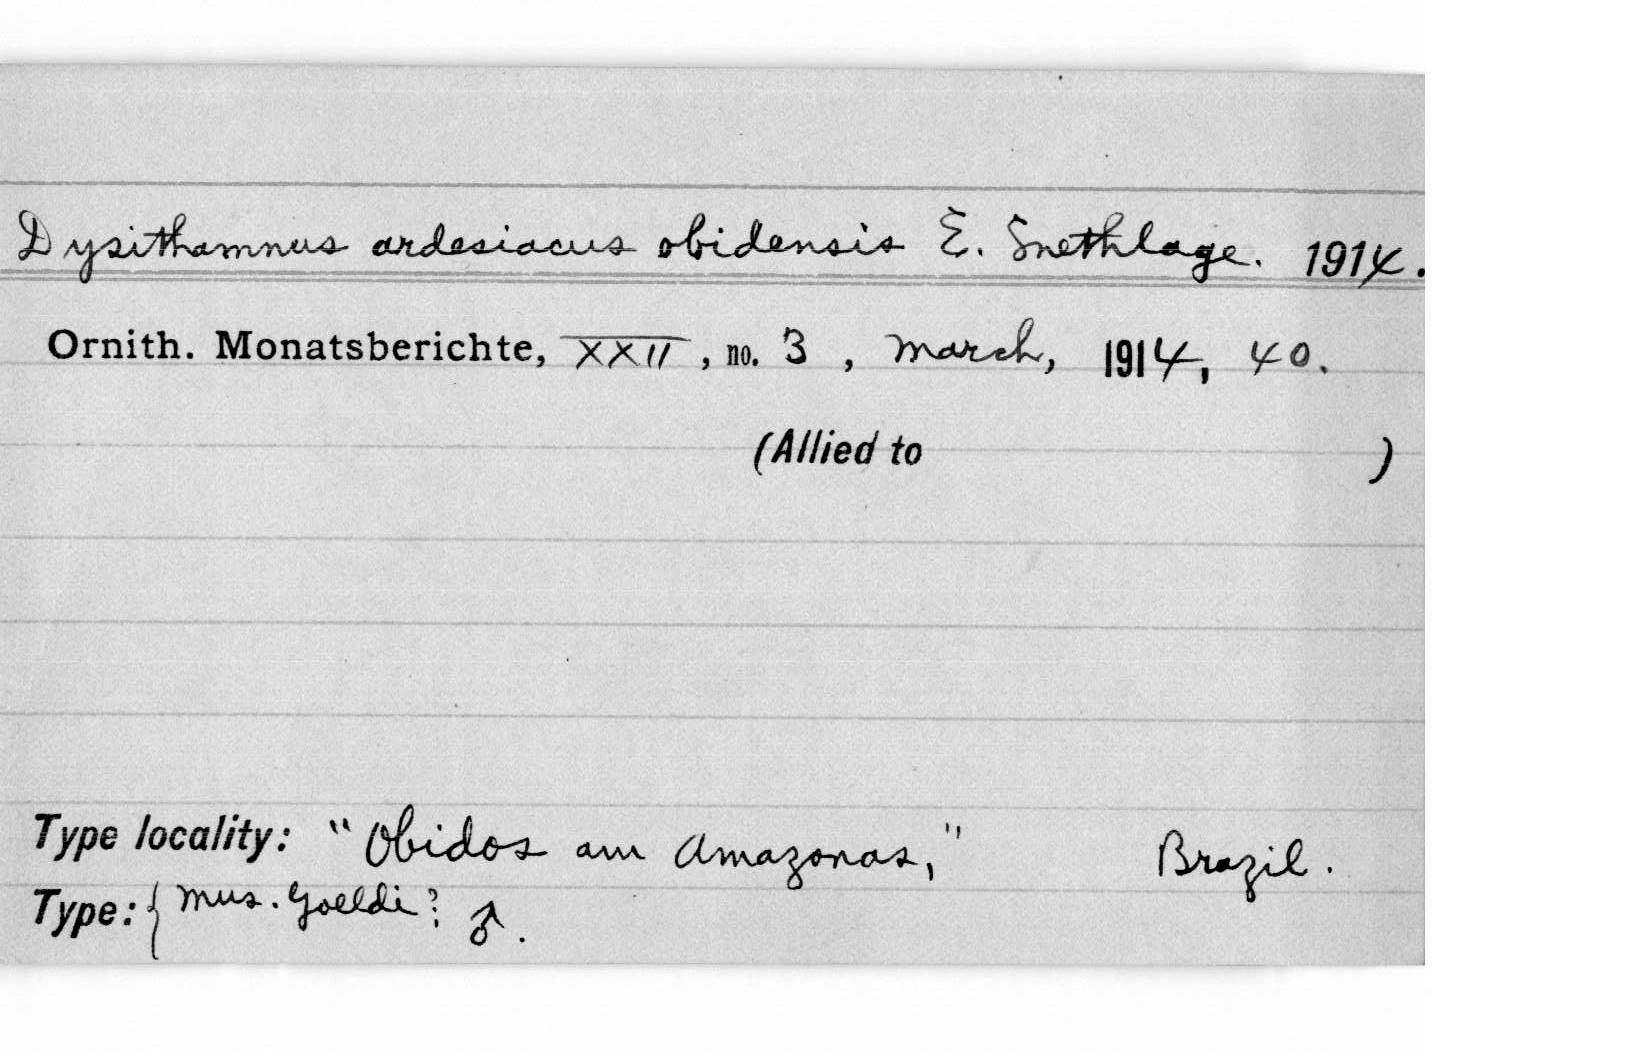 Dysithamnus ardesiacus obidensis E. Snethlage. 1914.
Ornith. Monatsberichte, XXII, no. 3, March, 1914, 40.
(Allied to )
Type locality: "Obidos am Amazonas," Brazil.
Type: { Mus. Goeldi? ♂.